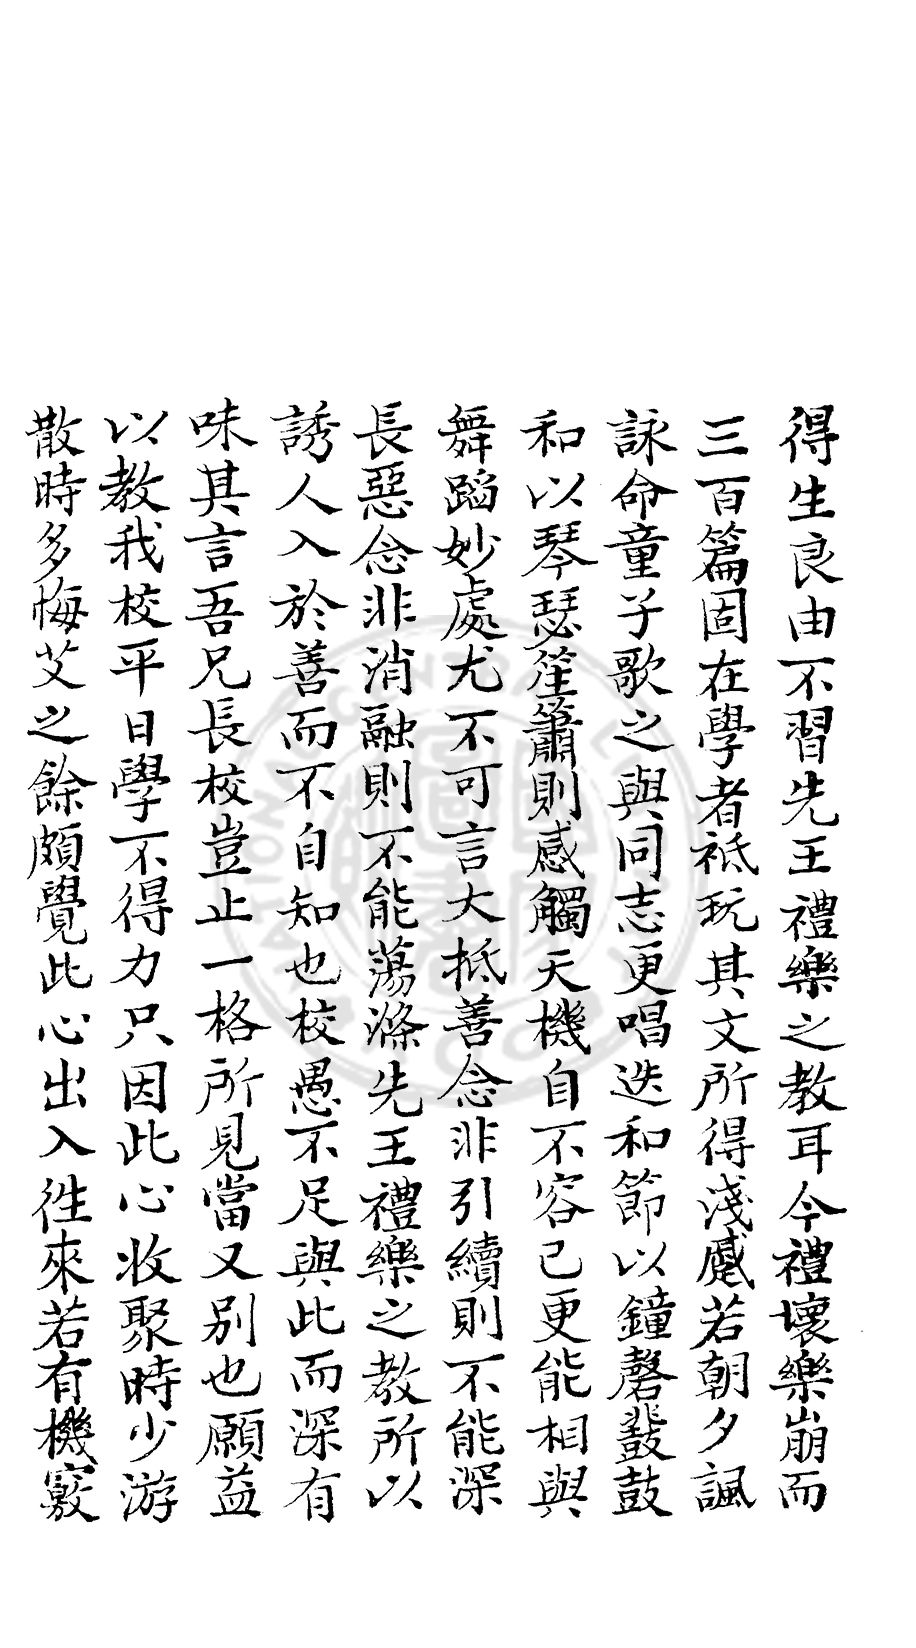 得生良由不習先王禮樂之教耳今禮壞樂崩而
三百篇固在學者祗玩其文所得淺尠若朝夕諷
詠命童子歌之與同志更唱迭和節以鐘磬鼗鼓
和以琴瑟笙簫則感觸天機自不容已更能相與
舞蹈妙處尤不可言大抵善念非引續則不能深
長惡念非消融則不能蕩滌先王禮樂之教所以
誘人入於善而不自知也校愚不足與此而深有
味其言吾兄長校豈止一格所見當又別也願益
以教我校平日學不得力只因此心收聚時少游
散時多悔艾之餘頗覺此心出入徃來若有機竅